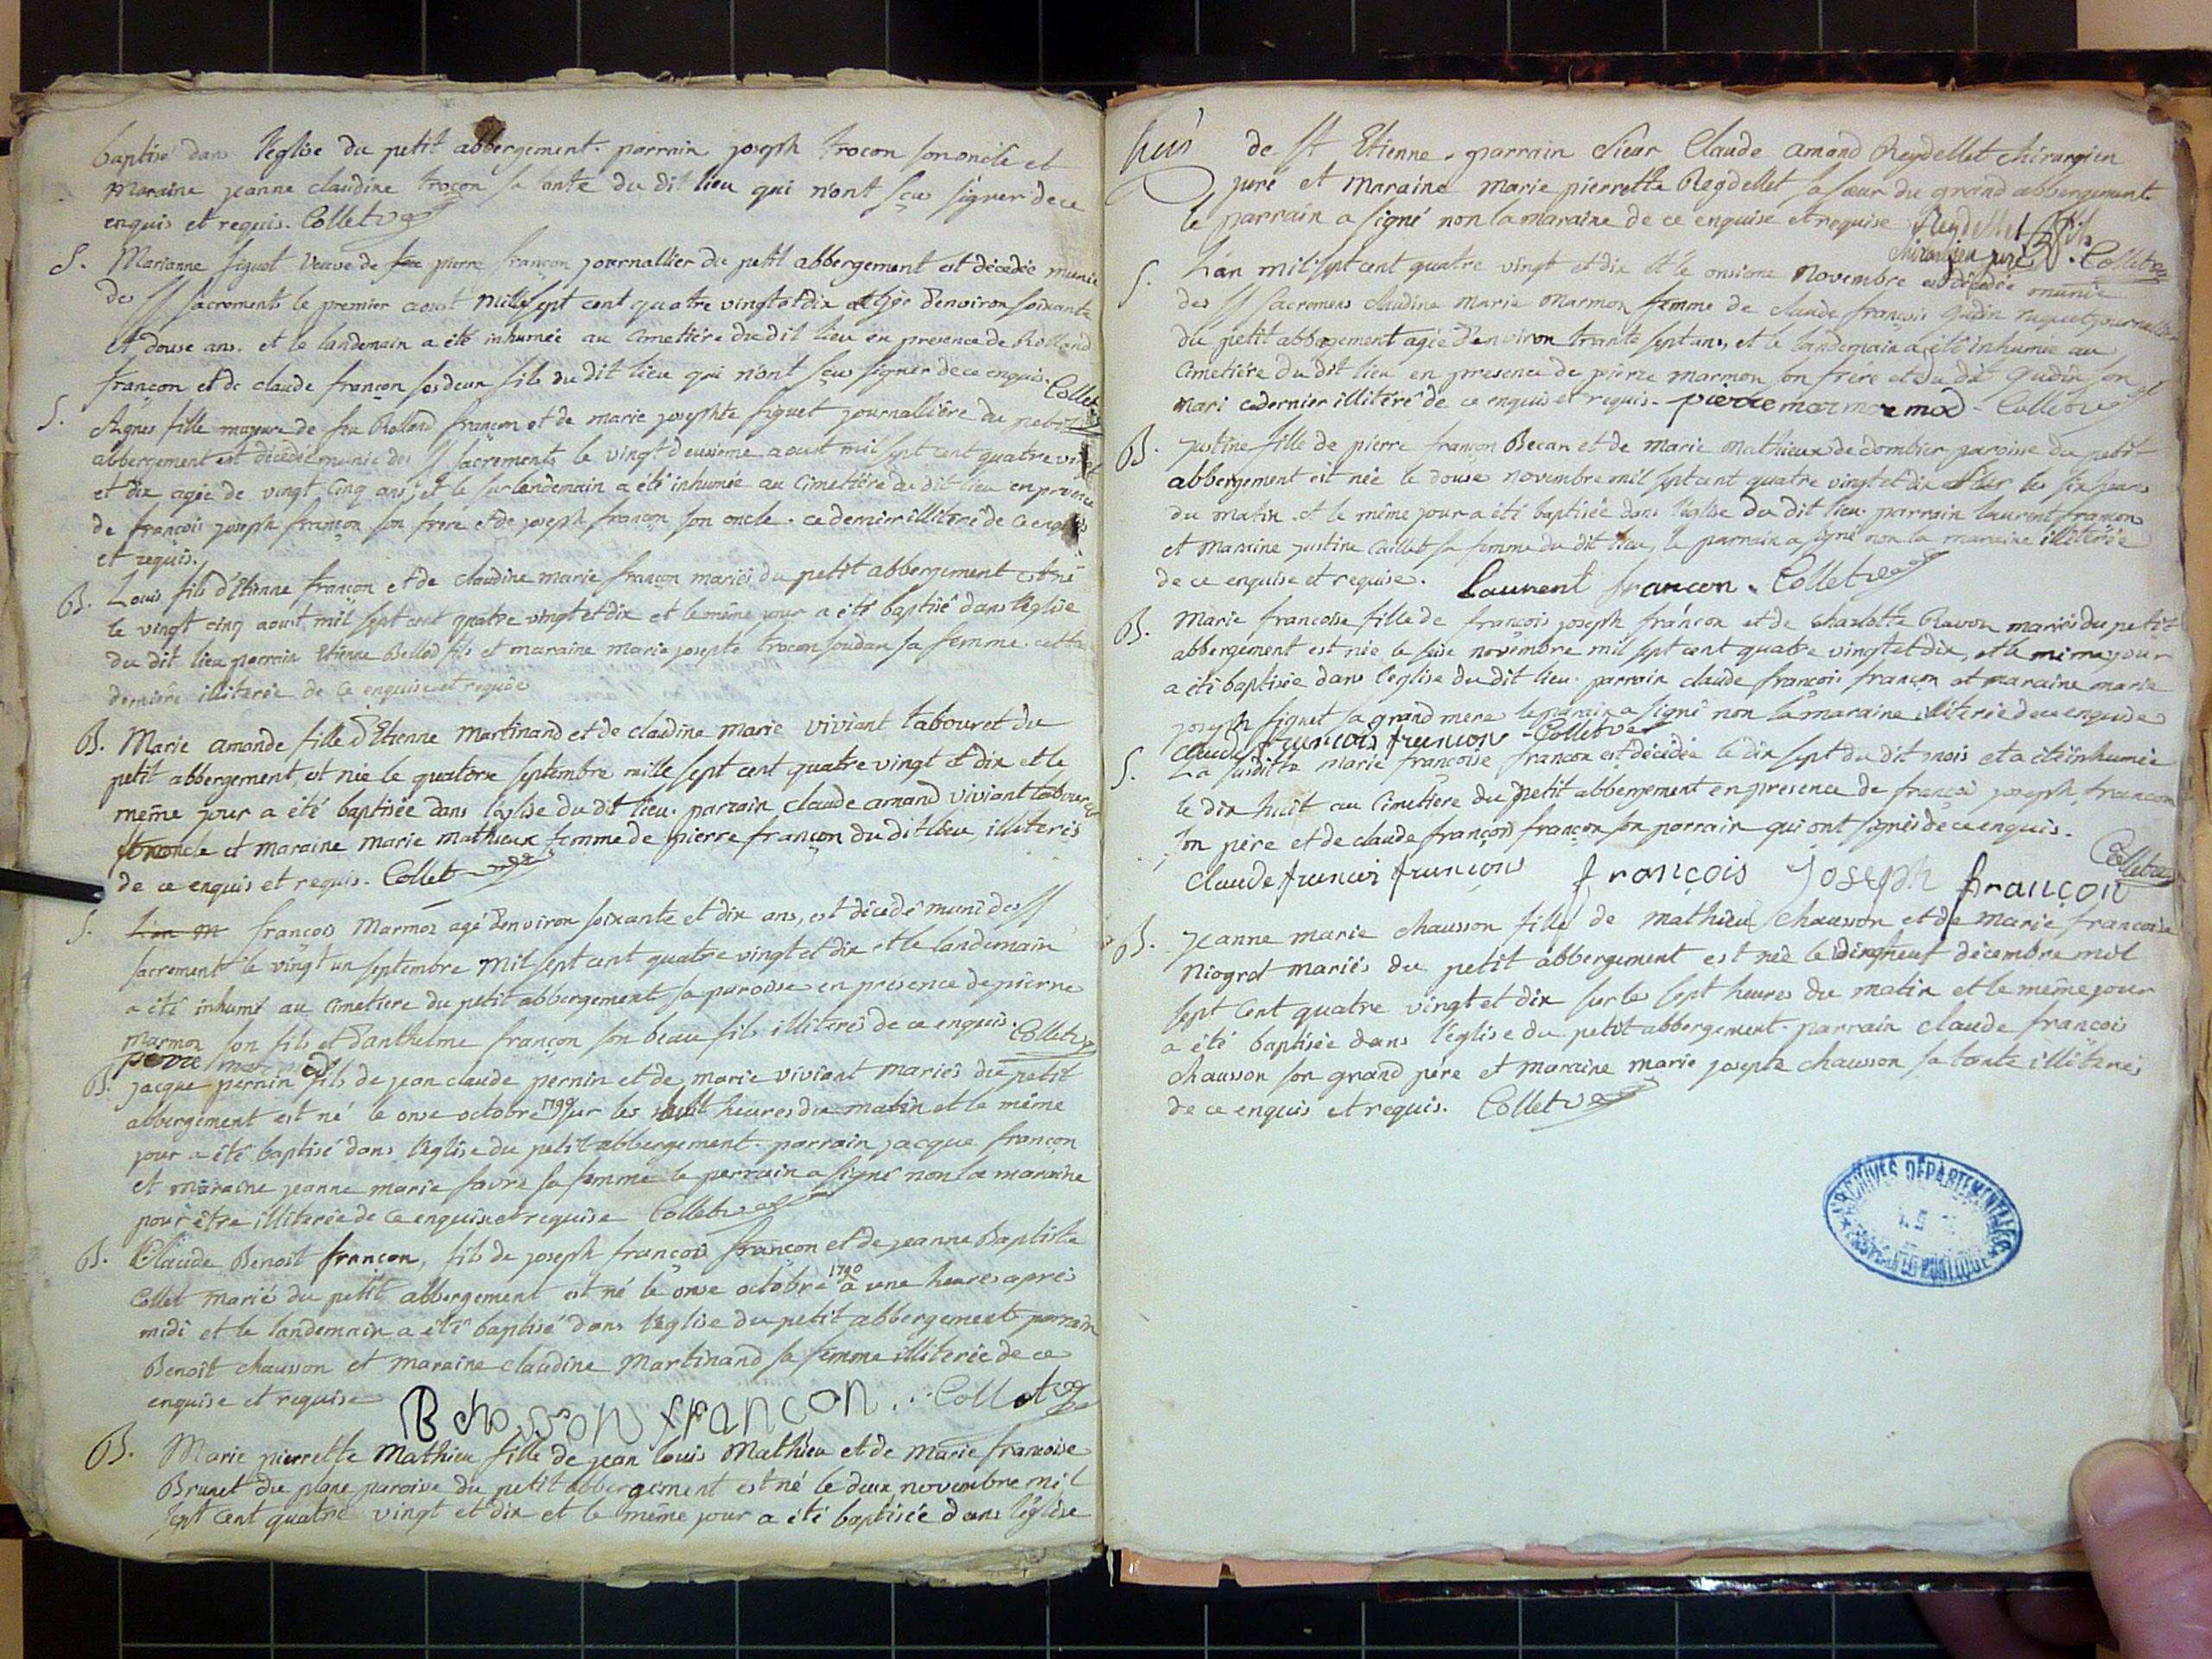 baptisé dans l'église du petit abbergement. parrain joseph trocon son oncle et
maraine jeanne claudine trocon sa tante du dit lieu qui n'ont sçu signer de ce
enquis et requis. Collet
S. Marianne figuet veuve de pierre françon journallier du petit abbergement est décédée munie
des SS sacrements le premier aout mille sept cent quatre vingt et dix agée d'environ soixante
et douse ans. et le landemain a été inhumée au cimetière du dit lieu en presence de Rolland
françon et de claude françon ses deux fils du dit lieu qui n'ont sçu signer de ce enquis. Collet
S. Agnès fille majeure de feu Rolland françon et de marie josephte figuet journallière du petit
abbergement est décédée munie des SS sacrements le vingt deusième aoust mil sept cent quatre vingt
et dix agée de vingt cinq ans, et le surlendemain a été inhumée au cimetière du dit lieu en presence
de françois joseph françon son frère et de joseph françon son oncle. ce dernier illiteré de ce enquis
et requis.
B. Louis fils d'Etienne françon et de claudine marie françon mariés du petit abbergement est né
le vingt cinq aoust mil sept cent quatre vingt et dix et le même jour a été baptisé dans l'église
du dit lieu parrain Etienne Bellod fils et maraine marie josepte trocon soudan sa femme. cette
dernière illiterée de ce enquise et requise
B. Marie amande fille d'Etienne martinand et de claudine marie viviant tabouret du
petit abbergement, est née le quatorze septembre mille sept cent quatre vingt et dix et le
même jour a été baptisée dans l'église du dit lieu. parrain claude amand viviant tabouret
son oncle et maraine marie mathieux femme de pierre françon du dit lieu, illiterés
de ce enquis et requis. Collet
S. L'an m françois Marmoz agé d'environ soixante et dix ans, est décédé muni des SS
sacrement le vingt un septembre mil sept cent quatre vingt et dix et le landemain
a été inhumé au cimetiere du petit abbergement sa paroisse en presence de pierre
marmoz son fils et d'anthelme françon son beau fils illiterés de ce enquis. Collet
pierre
B. jacque pernin fils de jean claude pernin et de marie viviant mariés du petit
abbergement est né le onse octobre 1790 sur les huit heures du matin et le même
jour a été baptisé dans l'église du petit abbergement. parrain jacque françon
et maraine jeanne marie favre sa femme le parrain a signé non la maraine
pour être illiterée de ce enquise et requise Collet
B. Claude Benoit françon, fils de joseph françois françon et de jeanne Baptiste
Collet marié du petit abbergement est né le onse octobre 1790 à une heures après
midi et le landemain a été baptisé dans l'église du petit abbergement parrain
Benoit chausson et maraine claudine Martinand sa femme illiterée de ce
enquise et requise B chosson françon. Collet
B. Marie pierrette Mathieu fille de jean louis Mathieu et de Marie francoise
Brunet du plane paroisse du petit abbergement est né le deux novembre mil
sept cent quatre vingt et dix et le même jour a été baptisée dans l'église
de St Etienne. parrain Sieur Claude amand Reydellet chirurgien
juré et maraine marie pierrette Reydellet sa sœur du grand abbergement
le parrain a signé non la maraine de ce enquise et requise Reydellet fils
chirurgien juré Collet
S. L'an mil sept cent quatre vingt et dix et le onsieme novembre est décédée munie
des SS sacremens claudine marie marmoz femme de claude françois gudin
du petit abbergement agée d'environ trante sept ans, et le landemain a été inhumée au
cimetière du dit lieu en presence de pierre marmoz son frère et du dit gudin son
mari ce dernier illiteré de ce enquis et requis. pierre marmoz mod. Collet
B. justine fille de pierre françon Becan et de marie mathieux de dombier paroisse du petit
abbergement est née le douse novembre mil sept cent quatre vingt et dix sur les six heures
du matin. et le même jour a été baptisée dans l'église du dit lieu. parrain laurent françon
et maraine justine Caillet sa femme du dit lieu, le parrain a signé non la maraine illiterée
de ce enquise et requise. laurent francon. Collet
B. marie francoise fille de françois joseph françon et de charlotte Ravon mariés du petit
abbergement est née le seise novembre mil sept cent quatre vingt et dix, et le même jour
a été baptisée dans l'église du dit lieu. parrain claude françois françon et maraine marie
joseph figuet sa grand mere le parain a signé non la maraine illiterée de ce enquise
claude françois françon. Collet
S. La susditte marie françoise françon est décédée le dix sept du dit mois et a été inhumée
le dix huit au cimetiere du petit abbergement en presence de françois joseph françon
son père et de claude françois françon son parrain qui ont signés de ce enquis.
Collet
claude françois françons françois joseph françon
B. jeanne marie chausson fille de mathieu chausson et de marie francoise
niogret mariés du petit abbergement est née le dixneuf décembre mil
sept cent quatre vingt et dix sur les sept heures du matin et le même jour
a été baptisée dans l'église du petit abbergement. parrain claude francois
chausson son grand père et maraine marie josepte chausson sa tante illiterés
de ce enquis et requis. Collet
ARCHIVES DÉPARTEMENTALES